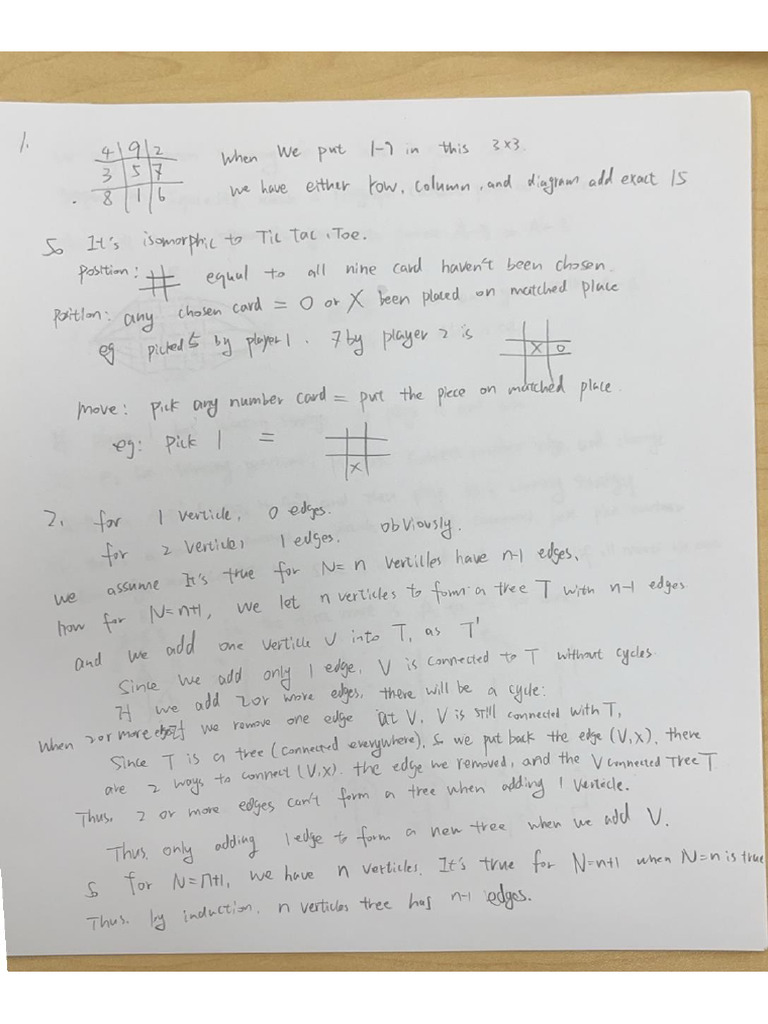 1.
4 9 2
3 5 7
8 1 6
When We put 1-9 in this 3x3.
we have either row, column, and diagram add exact 15
So It's isomorphic to Tic Tac Toe.
Position: # equal to all nine card haven't been chosen.
Position: any chosen card = O or X been placed on matched place
eg picked 5 by player 1. 7 by player 2 is
X O
move: pick any number card = put the piece on matched place.
eg: pick 1 =
X
2. for 1 verticle, 0 edges.
for 2 verticles 1 edges. obviously.
we assume It's true for N=n vertilles have n-1 edges,
how for N=n+1, we let n verticles to form a tree T with n-1 edges
and we add one verticle V into T, as T'
Since we add only 1 edge, V is connected to T without cycles.
If we add 2 or more edges, there will be a cycle:
When 2 or more we remove one edge at V, V is still connected with T,
Since T is a tree (connected everywhere), so we put back the edge (V,x), there
are 2 ways to connect (V,x). the edge we removed, and the V connected Tree T
Thus, 2 or more edges can't form a tree when adding 1 verticle.
Thus, only adding 1 edge to form a new tree when we add V.
So for N=n+1, we have n verticles. It's true for N=n+1 when N=n is true
Thus. by induction, n verticles tree has n-1 edges.